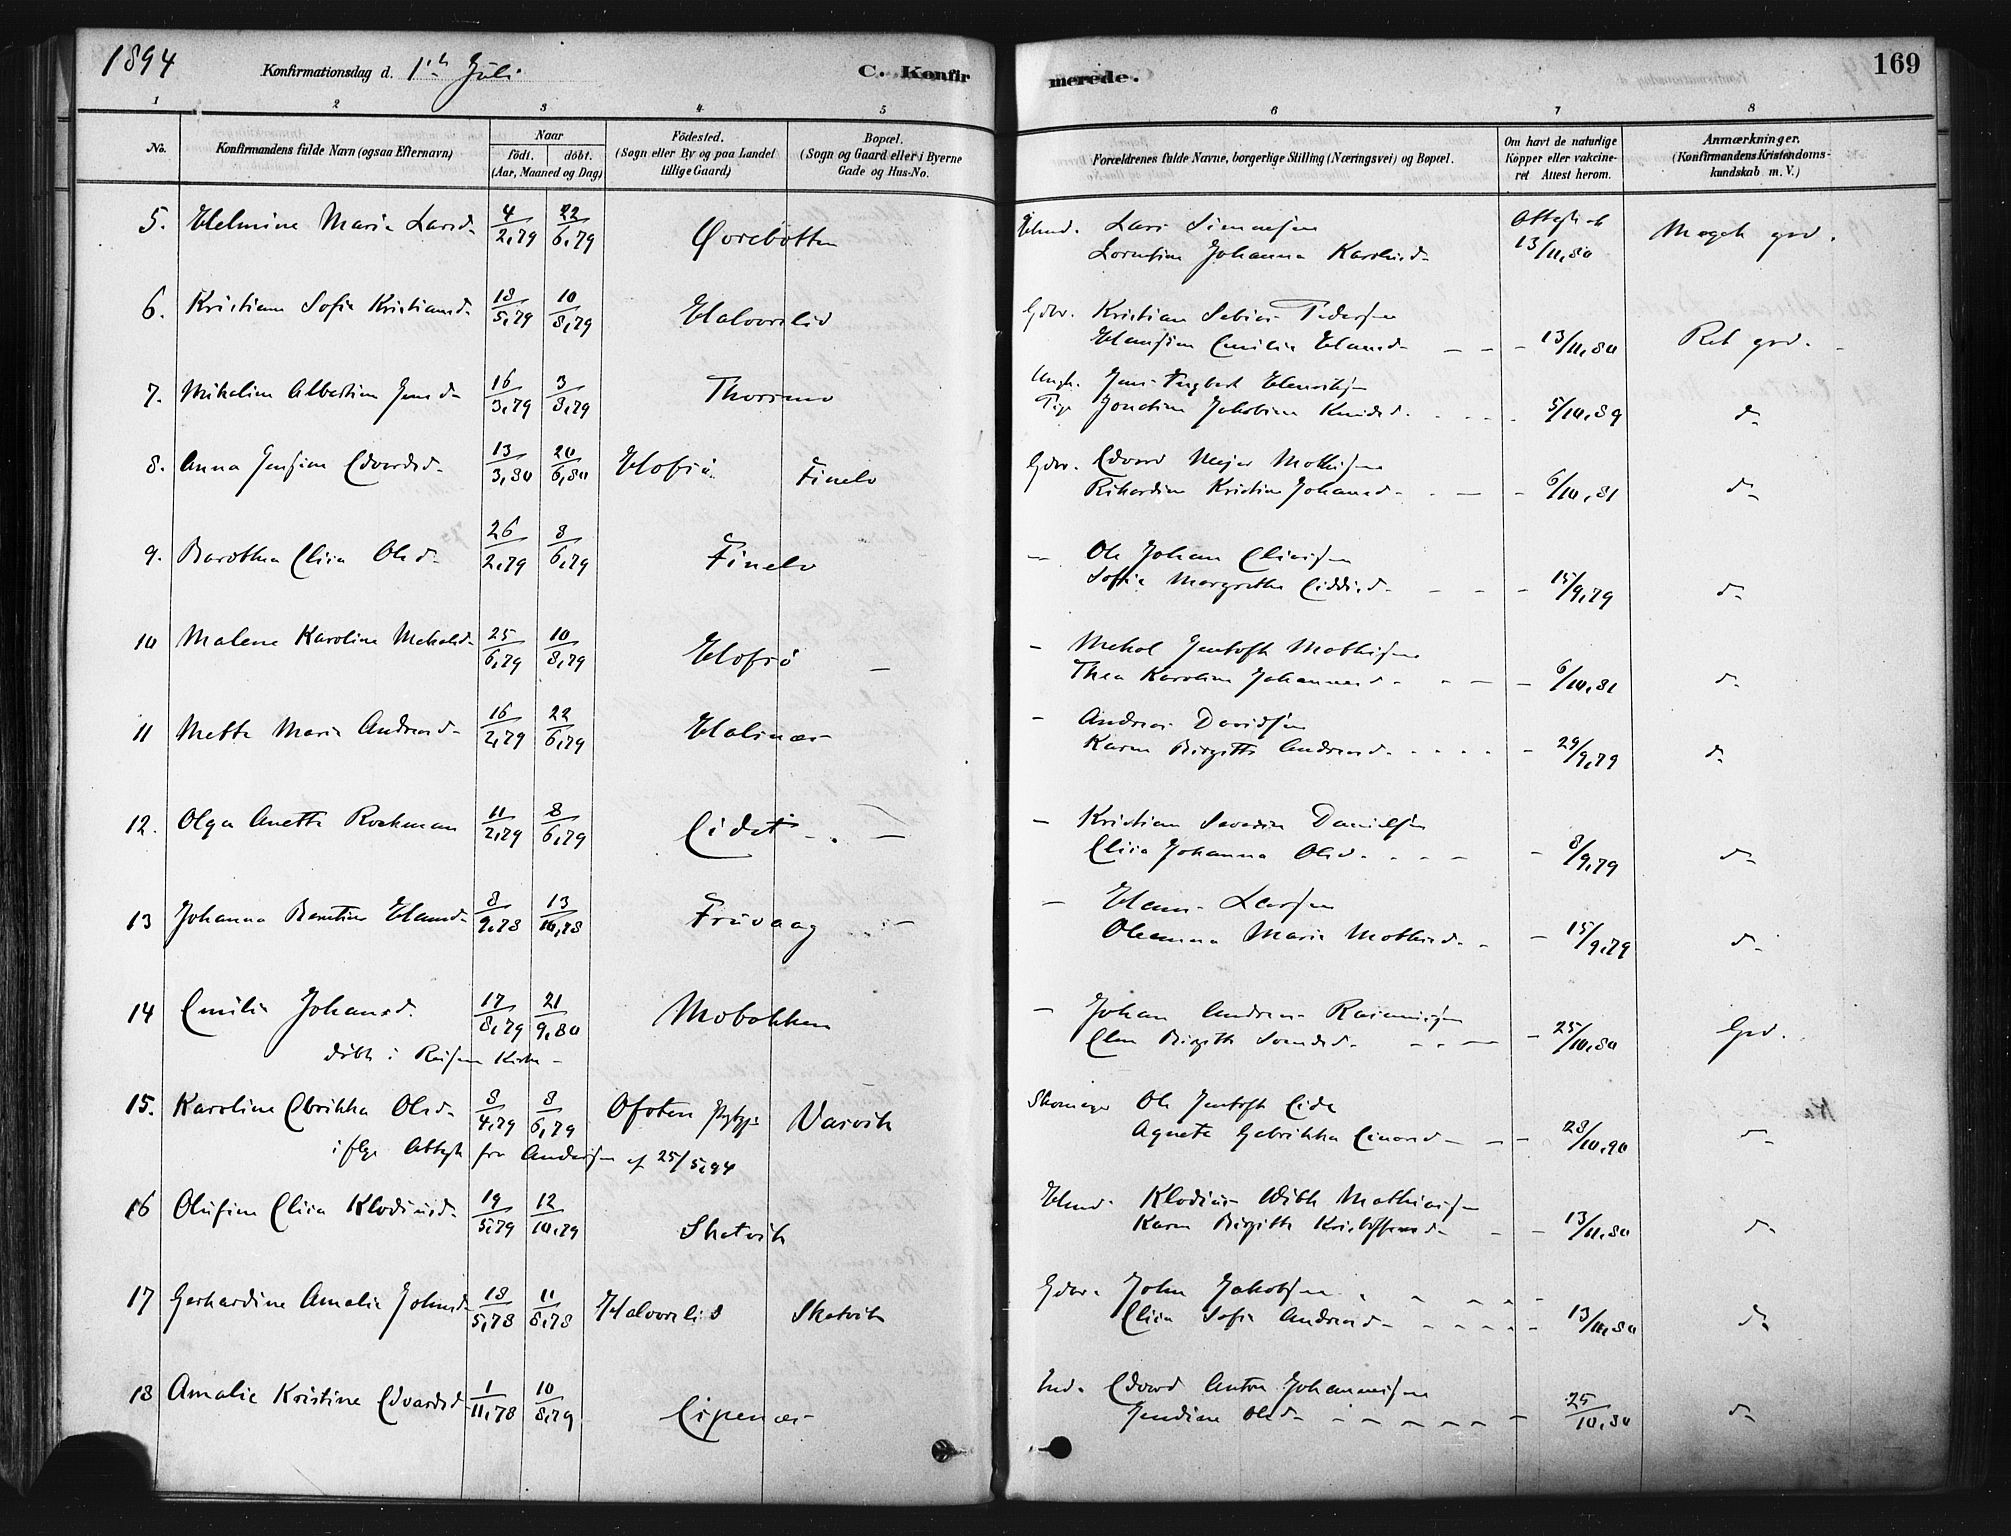 1894
Konfirmationsdag d. 1ste Juli
C. Konfirmerede.
169
1 2 3 4 5 6 7 8
No.
Konfirmandens fulde Navn (ogsaa Efternavn)
Naar
födt. döbt.
(Aar, Maaned og Dag)
Födested.
(Sogn eller By og paa Landet
tillige Gaard)
Bopæl.
(Sogn og Gaard eller i Byerne
Gade og Hus-No.
Forældrenes fulde Navne, borgerlige Stilling (Næringsvei) og Bopæl.
Om havt de naturlige
Kopper eller vakcine-
ret Attest herom.
Anmærkninger.
(Konfirmandens Kristendoms-
kundskab m. V.)
5. Helmine Maria Larsd. 4/2,79 22/6,79 Øvrebotten
Lars Simonsen
Johanna Karlsd. 13/11,80 Meget god.
6. Kristiane Sofie Kristiansd. 18/5,79 10/8,79 Halvorslid
Gdbr. Kristian Tobias Pedersen
Hansine Emilie Hansd. — 13/11,80 Ret god.
7. Mikaline Albertine Jensd. 16/3,79 3/8,79
Ungk. Jens Ingbert Henriksen
Pige Jonetine Jakobine Knudsd. 5/10,89 do
8. Anna Jensine Edvardsd. 13/3,80 20/6,80 Hofsö Finelv
Gdbr. Edvard Mejer Mathisen
Rikardine Kristine Johansd. — 6/10,81 do
9. Barothea Elisa Olsd. 26/2,79 8/6,79 Finelv
— Ole Johan Eliasen
Sofie Margrethe — 15/9,79 do
10 Malene Karoline Mekalsd. 25/6,79 10/8,79 Hofsö —
— Mekal Jentoft Mathisen
Thea Karoline Johannesd. — 6/10,81 do
11 Mette Marie Andreasd. 16/2,79 22/6,79
— Andreas Davidsen
Karen Birgitte Andreasd. — 29/9,79 do
12. Olga Anette Rockman 11/2,79 8/6,79 Eidet —
— Kristian Severin Danielsen
Elisa Johanna Olsd. — 8/9,79 do
13 Johanna Berntine Hansd. 8/9,78 13/10,78 Truvaag —
— Hans Larsen
Oleanna Marie Mathisd. — 15/9,79 do
14 Emilie Johansd. 17/8,79 21/9,80 Mobakken
döbt i Kirke
— Johan Andreas Rasmusen
Elen Birgitte — 25/10,80 God.
15. Karoline Olsd. 8/4,79 8/6,79 Ofoten Vasvik
ifölge Attest fra af 25/5,94
Skomager Ole Jentoft Eide
Agnete — 28/10,90 do
16 Olufine Elisa Klodiusd. 19/5,79 12/10,79 Skatvik
Klodius Mathiasen
Karen Birgitte Kristoffersd. — 13/11,80 do
17 Gerhardine Amalie Johnsd. 18/5,78 11/8,78 Halvorslid Skatvik
Gdbr. John Jakobsen
Elisa Sofie Andreasd. — 13/11,80 do
18 Amalie Kristine Edvardsd. 1/11,78 10/8,79
Ind. Edvard Anton Johannesen
Jendine Olsd. — 25/10,80 do